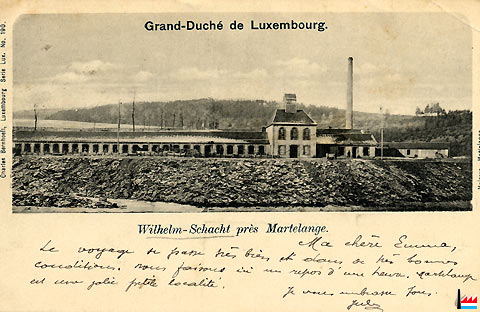 Grand-Duché de Luxembourg.
Charles Bernhoeft, Luxembourg Serie Lux. No. 190.
Wilhelm-Schacht près Martelange.
Ma chère Emma,
Le voyage se passe très bien et dans de très bonnes
conditions. nous faisons ici un repos d'une heure. Martelange
est une jolie petite localité.
Je vous embrasse tous.